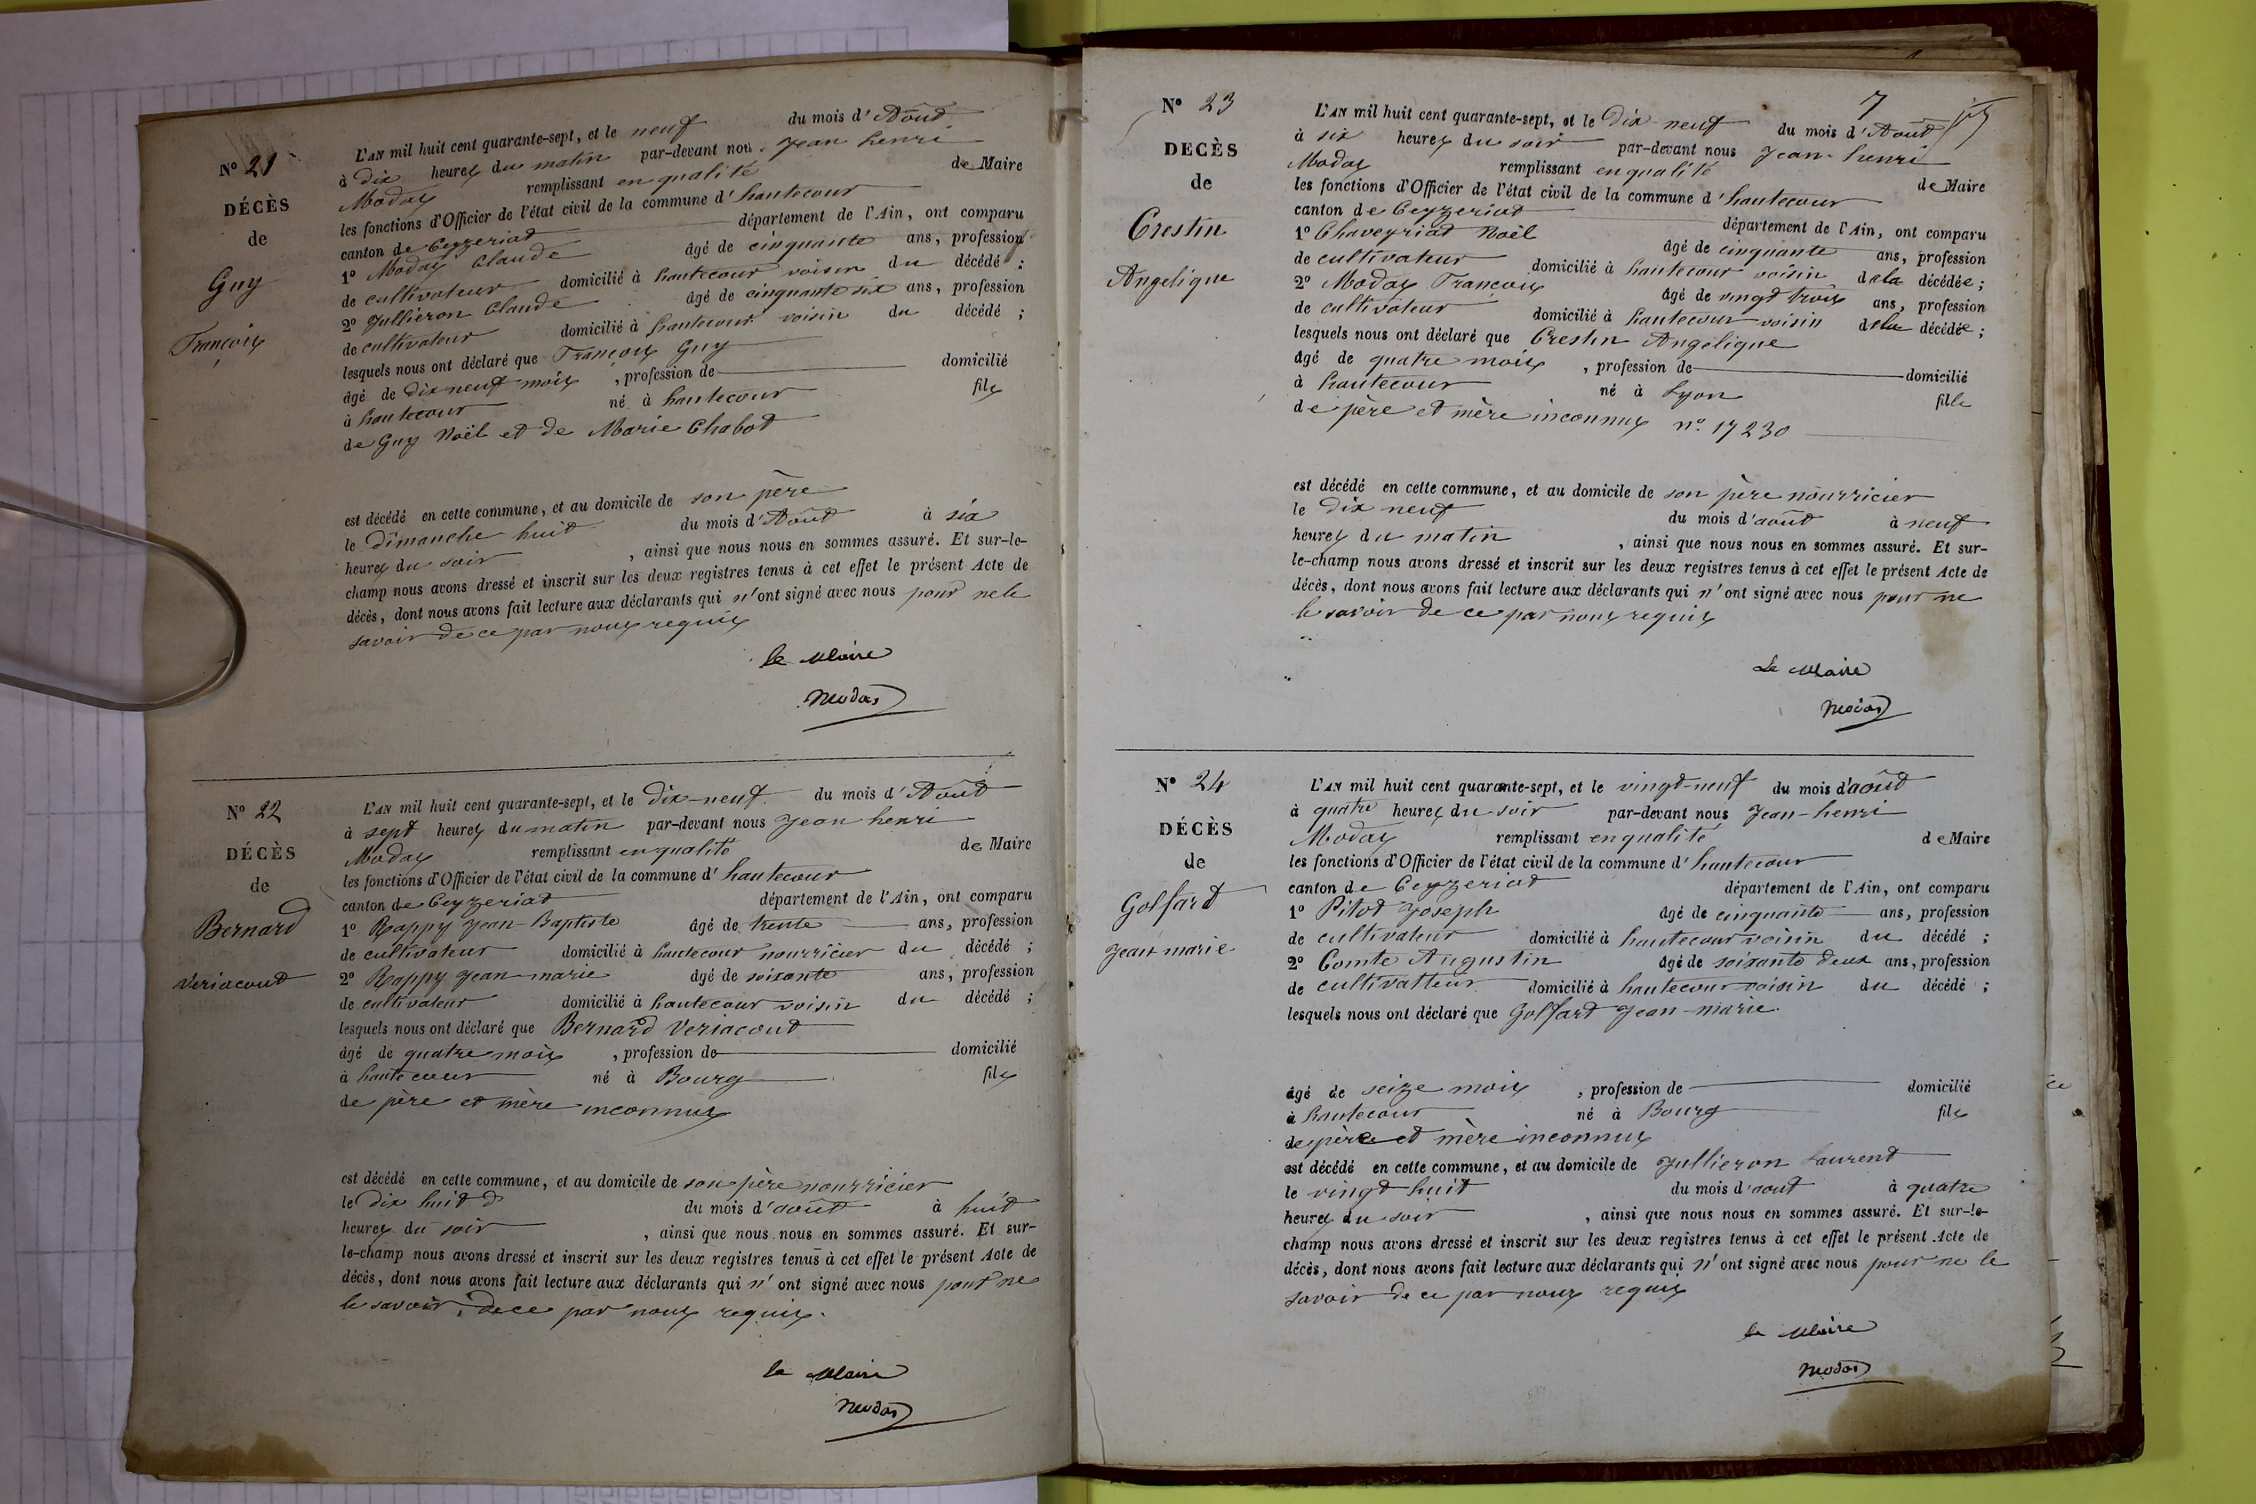 N° 21
DÉCÈS
de
Guy
François
L'AN mil huit cent quarante-sept, et le neuf du mois d'Aoûd
à dix heures du matin par-devant nous Jean henri
Modas remplissant en qualité de Maire
les fonctions d'Officier de l'état civil de la commune d'hautecour
canton de Ceyzeriad département de l'Ain, ont comparu
1° Modas Claude âgé de cinquante ans, profession
de cultivateur domicilié à hautecour voisin du décédé ;
2° Jullieron Claude âgé de cinquante six ans, profession
de cultivateur domicilié à hautecour voisin du décédé ;
lesquels nous ont déclaré que François Guy
âgé de dix neuf mois , profession de domicilié
à hautecour né à hautecour fils
de Guy Noël et de Marie Chabot
est décédé en cette commune, et au domicile de son père
le dimanche huit du mois d'Aoûd à six
heures du soir , ainsi que nous nous en sommes assuré. Et sur-le-
champ nous avons dressé et inscrit sur les deux registres tenus à cet effet le présent Acte de
décès, dont nous avons fait lecture aux déclarants qui n'ont signé avec nous pour ne le
savoir de ce par nous requis
le Maire
Modas
N° 22
DÉCÈS
de
Bernard
Veriacoud
L'AN mil huit cent quarante-sept, et le dix-neuf du mois d'Aoûd
à sept heures du matin par-devant nous Jean henri
Modas remplissant en qualité de Maire
les fonctions d'Officier de l'état civil de la commune d'hautecour
canton de Ceyzeriad département de l'Ain, ont comparu
1° Rappy Jean-Baptiste âgé de trente ans, profession
de cultivateur domicilié à hautecour nourricier du décédé ;
2° Rappy Jean marie âgé de soixante ans, profession
de cultivateur domicilié à hautecour voisin du décédé ;
lesquels nous ont déclaré que Bernard Veriacoud
âgé de quatre mois , profession de domicilié
à hautecour né à Bourg fils
de père et mère inconnus
est décédé en cette commune, et au domicile de son père nourricier
le dix huit du mois d'août à huit
heures du soir , ainsi que nous nous en sommes assuré. Et sur-
le-champ nous avons dressé et inscrit sur les deux registres tenus à cet effet le présent Acte de
décès, dont nous avons fait lecture aux déclarants qui n'ont signé avec nous pour ne
le savoir, de ce par nous requis.
le Maire
Modas
7
N° 23
DECÈS
de
Crestin
Angelique
L'AN mil huit cent quarante-sept, et le dix neuf du mois d'Aoûd
à six heures du soir par-devant nous Jean-henri
Modas remplissant en qualité de Maire
les fonctions d'Officier de l'état civil de la commune d'hautecour
canton de Ceyzeriad département de l'Ain, ont comparu
1° Chaveyriad Noël âgé de cinquante ans, profession
de cultivateur domicilié à hautecour voisin de la décédée ;
2° Modas François âgé de vingd trois ans, profession
de cultivateur domicilié à hautecour voisin de la décédée ;
lesquels nous ont déclaré que Crestin Angélique
âgé de quatre mois , profession de domicilié
à hautecour né à Lyon fille
de père et mère inconnus n° 17230
est décédé en cette commune, et au domicile de son père nourricier
le dix neuf du mois d'août à neuf
heures du matin , ainsi que nous nous en sommes assuré. Et sur-
le-champ nous avons dressé et inscrit sur les deux registres tenus à cet effet le présent Acte de
décès, dont nous avons fait lecture aux déclarants qui n'ont signé avec nous pour ne
le savoir de ce par nous requis
Le Maire
Modas
N° 24
DÉCÈS
de
Golfard
Jean marie
L'AN mil huit cent quarante-sept, et le vingd-neuf du mois d'août
à quatre heures du soir par-devant nous Jean-henri
Modas remplissant en qualité de Maire
les fonctions d'Officier de l'état civil de la commune d'hautecour
canton de Ceyzeriad département de l'Ain, ont comparu
1° Pitod Joseph âgé de cinquante ans, profession
de cultivateur domicilié à hautecour voisin du décédé ;
2° Comte Augustin âgé de soixante deux ans, profession
de cultivatteur domicilié à hautecour voisin du décédé ;
lesquels nous ont déclaré que Golfard Jean-marie
âgé de seize mois , profession de domicilié
à hautecour né à Bourg fils
de père et mère inconnus
est décédé en cette commune, et au domicile de Jullieron Laurend
le vingd huit du mois d'aout à quatre
heures du soir , ainsi que nous nous en sommes assuré. Et sur-le-
champ nous avons dressé et inscrit sur les deux registres tenus à cet effet le présent Acte de
décès, dont nous avons fait lecture aux déclarants qui n'ont signé avec nous pour ne le
savoir de ce par nous requis
le Maire
Modas